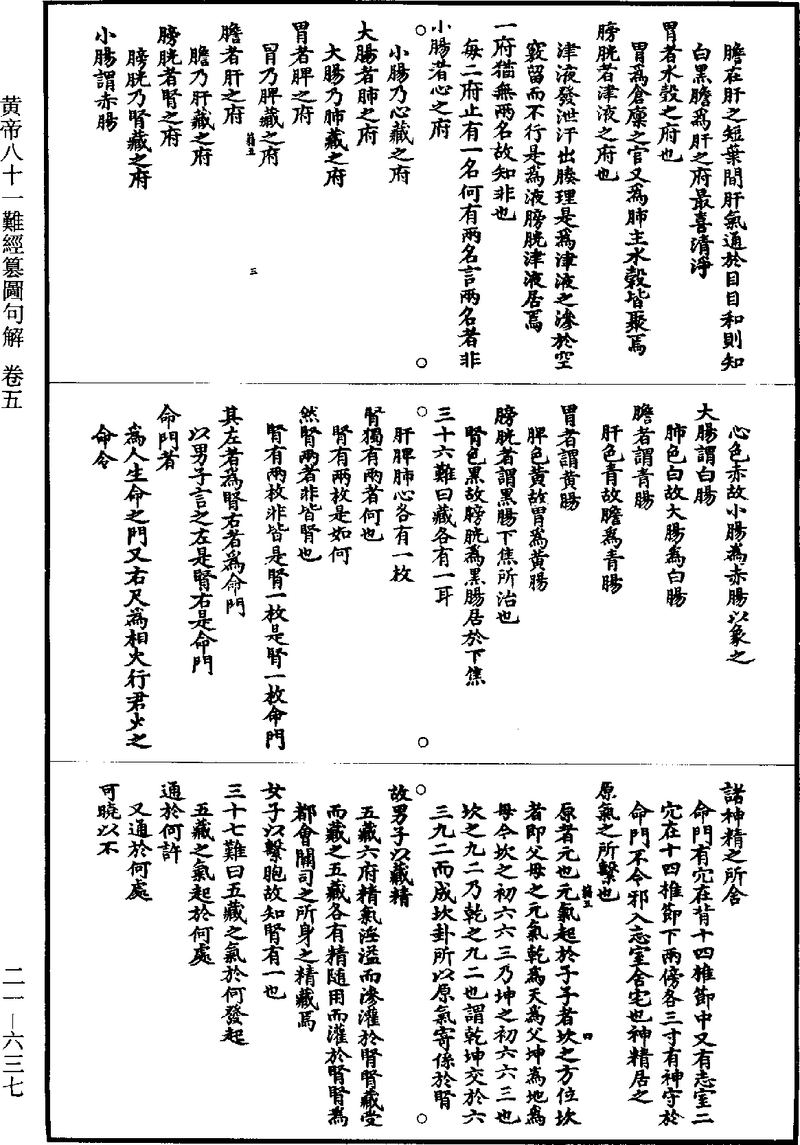 黄帝八十一難經纂圖句解 卷五
二一—六三七
膽在肝之短葉間肝氣通於目目和則知
白黑膽為肝之府最喜清淨
胃者水穀之府也
胃為倉廩之官又為肺主水穀皆聚焉
膀胱者津液之府也
津液發泄汗出腠理是為津液之滲於空
竅留而不行是為液膀胱津液居焉
一府猶無兩名故知非也
每二府止有一名何有兩名言兩名者非
小腸者心之府
小腸乃心藏之府
大腸者肺之府
大腸乃肺藏之府
胃者脾之府
胃乃脾藏之府
膽者肝之府
膽乃肝藏之府
膀胱者腎之府
膀胱乃腎藏之府
小腸謂赤腸
三
心色赤故小腸為赤腸以象之
大腸謂白腸
肺色白故大腸為白腸
膽者謂青腸
肝色青故膽為青腸
胃者謂黃腸
脾色黃故胃為黃腸
膀胱者謂黑腸下焦所治也
腎色黑故膀胱為黑腸居於下焦
三十六難曰藏各有一耳
肝脾肺心各有一枚
腎獨有兩者何也
腎有兩枚是如何
然腎兩者非皆腎也
腎有兩枚非皆是腎一枚是腎一枚命門
其左者為腎右者為命門
以男子言之左是腎右是命門
命門者
為人生命之門又右尺為相火行君火之
命令
諸神精之所舍
命門有穴在背十四椎節中又有志室二
穴在十四椎節下兩傍各三寸有神守於
命門不令邪入志室舍宅也神精居之
原氣之所繫也
原者元也元氣起於子子者坎之方位坎
者即父母之元氣乾為天為父坤為地為
母今坎之初六六三乃坤之初六六三也
坎之九二乃乾之九二也謂乾坤交於六
三九二而成坎卦所以原氣寄係於腎
故男子以藏精
五藏六府精氣淫溢而滲灌於腎腎藏受
而藏之五藏各有精隨用而灌於腎腎為
都會關司之所身之精藏焉
女子以繫胞故知腎有一也
三十七難曰五藏之氣於何發起
五藏之氣起於何處
通於何許
又通於何處
可曉以不
四